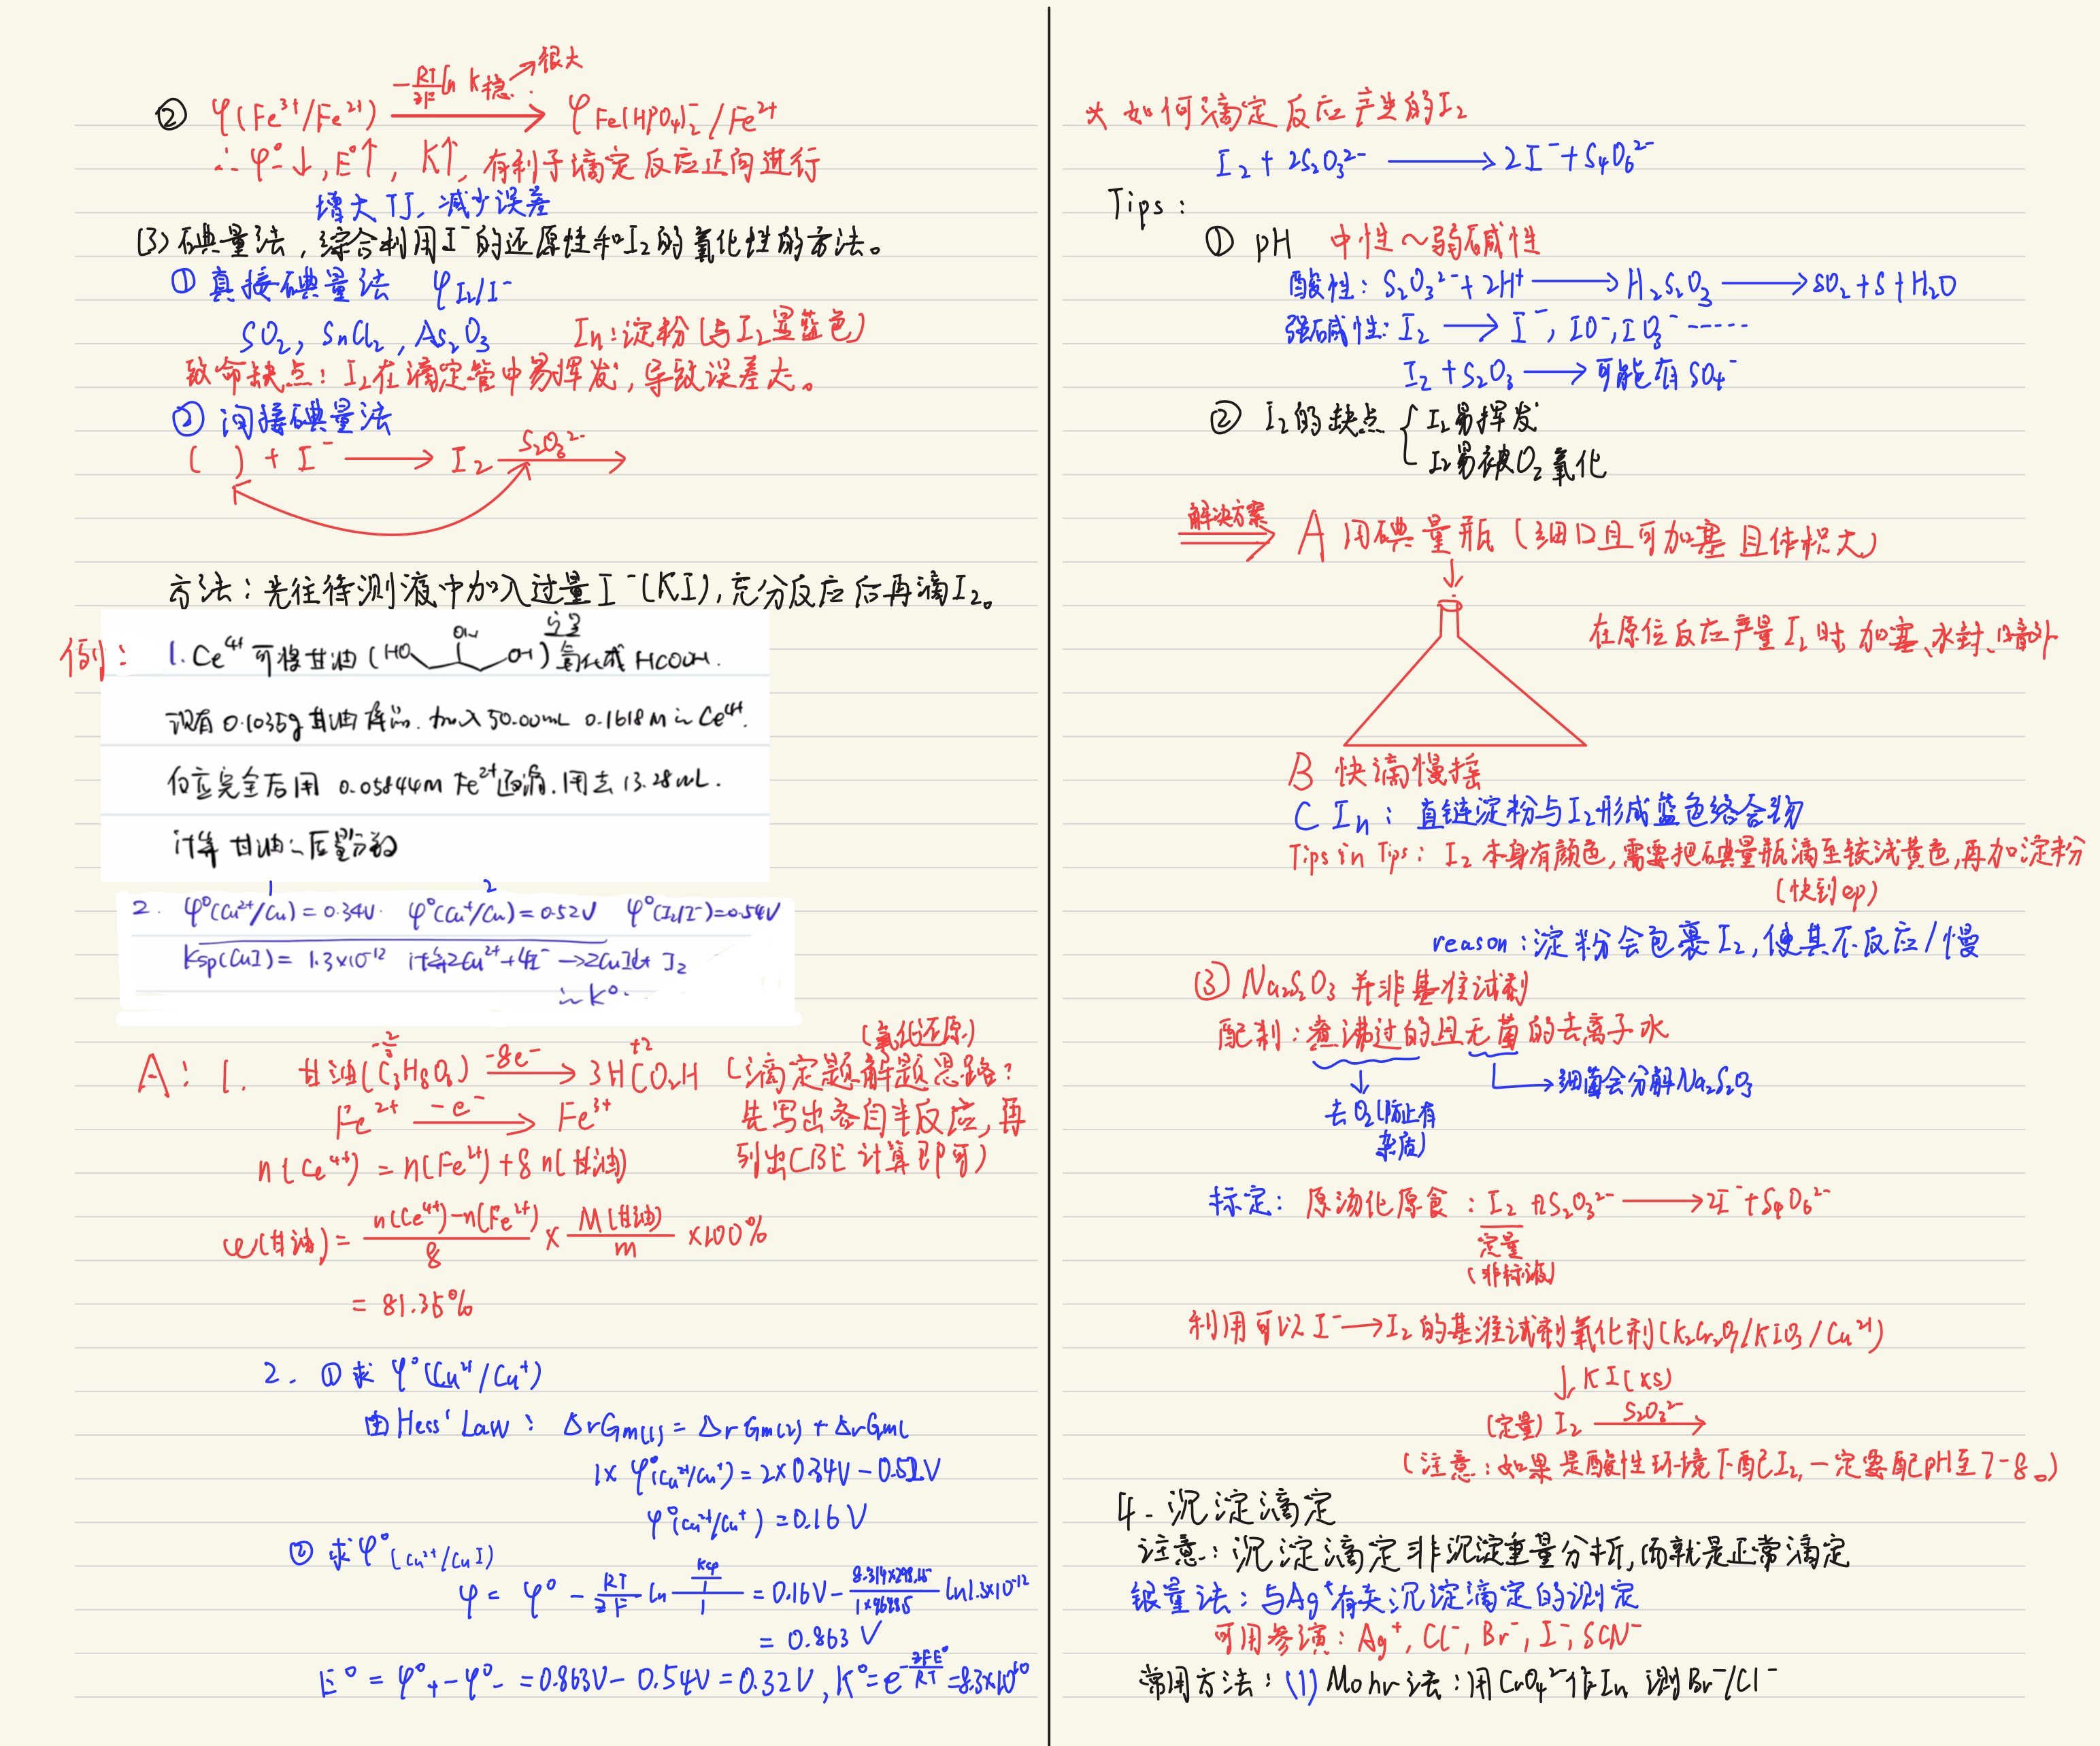 ② φ(Fe³⁺/Fe²⁺) —(-RT/zF ln K稳 → 很大)→ φ Fe(HPO₄)₂⁻/Fe²⁺
∴ φ°₋↓, E°↑, K↑, 有利于滴定反应正向进行
增大TJ, 减少误差
(3) 碘量法, 综合利用I⁻的还原性和I₂的氧化性的方法。
① 直接碘量法 φ I₂/I⁻
SO₂, SnCl₂, As₂O₃ In:淀粉(与I₂显蓝色)
致命缺点: I₂在滴定管中易挥发, 导致误差大。
② 间接碘量法
( ) + I⁻ ⟶ I₂ —S₂O₃²⁻→
方法: 先往待测液中加入过量I⁻(KI), 充分反应后再滴I₂。
例: 1. Ce⁴⁺可将甘油(HO OH OH)定量氧化成HCOOH.
现有0.1035g甘油样品. 加入50.00mL 0.1618M Ce⁴⁺.
反应完全后用 0.05844M Fe²⁺返滴. 用去13.28mL.
计算甘油质量分数
1 2
2. φ°(Cu²⁺/Cu)=0.34V. φ°(Cu⁺/Cu)=0.52V φ°(I₂/I⁻)=0.54V
Ksp(CuI)= 1.3×10⁻¹² 计算2Cu²⁺+4I⁻→2CuI↓+I₂
K°.
A: 1. 甘油(C₃H₈O₃) —-8e⁻→ 3HCO₂H (滴定题(氧化还原)解题思路:
Fe²⁺ —-e⁻→ Fe³⁺ 先写出各自半反应, 再
n(Ce⁴⁺) = n(Fe²⁺)+8n(甘油) 列出CBE计算即可)
w(甘油) = (n(Ce⁴⁺)-n(Fe²⁺))/8 × M(甘油)/m ×100%
= 81.35%
2. ① 求 φ°(Cu²⁺/Cu⁺)
由Hess' Law: ΔrGm(1) = ΔrGm(2) + ΔrGm(
1× φ°(Cu²⁺/Cu⁺) = 2×0.34V-0.52V
φ°(Cu²⁺/Cu⁺) = 0.16V
② 求φ°(Cu²⁺/CuI)
φ = φ° - RT/zF ln (Ksp/1)/1 = 0.16V - (8.314×298.15)/(1×96485) ln1.3×10⁻¹²
= 0.863 V
E° = φ°₊-φ°₋ = 0.863V-0.54V=0.32V, K°=e^(-zFE°/RT)=8.3×10¹⁰
* 如何滴定反应产生的I₂
I₂ + 2S₂O₃²⁻ ⟶ 2I⁻+S₄O₆²⁻
Tips:
① pH 中性~弱碱性
酸性: S₂O₃²⁻+2H⁺ ⟶ H₂S₂O₃ ⟶ SO₂+S+H₂O
强碱性: I₂ ⟶ I⁻, IO⁻, IO₃⁻ ······
I₂ + S₂O₃ ⟶ 可能有SO₄⁻
② I₂的缺点 { I₂易挥发
I₂易被O₂氧化
解决方案 ⟹ A 用碘量瓶(细口且可加塞且体积大)
在原位反应产量I₂时 加塞、水封、
B 快滴慢摇
C In: 直链淀粉与I₂形成蓝色络合物
Tips in Tips: I₂本身有颜色, 需要把碘量瓶滴至较浅黄色, 再加淀粉
(快到ep)
reason: 淀粉会包裹I₂, 使其不反应/慢
③ Na₂S₂O₃并非基准试剂
配制: 煮沸过的且无菌的去离子水
→细菌会分解Na₂S₂O₃
去O₂(防止有
杂质)
标定: 原汤化原食: I₂ +2S₂O₃²⁻ ⟶ 2I⁻+S₄O₆²⁻
定量
(非标液)
利用可以I⁻→I₂的基准试剂氧化剂(K₂Cr₂O₇/KIO₃/Cu²⁺)
↓KI(xs)
(定量) I₂ —S₂O₃²⁻→
(注意: 如果是酸性环境下配I₂, 一定要配pH至7-8。)
4. 沉淀滴定
注意: 沉淀滴定非沉淀重量分析, 而就是正常滴定
银量法: 与Ag⁺有关沉淀滴定的测定
可用参演: Ag⁺, Cl⁻, Br⁻, I⁻, SCN⁻
常用方法: (1) Mohr法: 用CrO₄²⁻作In 测Br⁻/Cl⁻